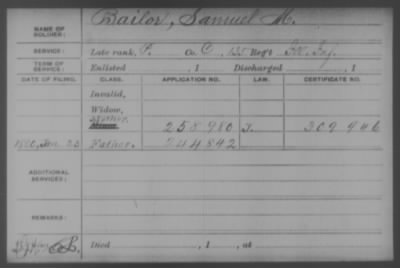 NAME OF SOLDIER: Bailor, Samuel M.
SERVICE: Late rank, P. Co. C, 135 Reg't Inf.
TERM OF SERVICE: Enlisted , 1 Discharged , 1
DATE OF FILING. CLASS. APPLICATION NO. LAW. CERTIFICATE NO.
Invalid,
Widow,
Mother. 258,980 J. 309,446
1880, Jan. 23 Father. 244842
ADDITIONAL SERVICES:
REMARKS:
Died , 1 , at